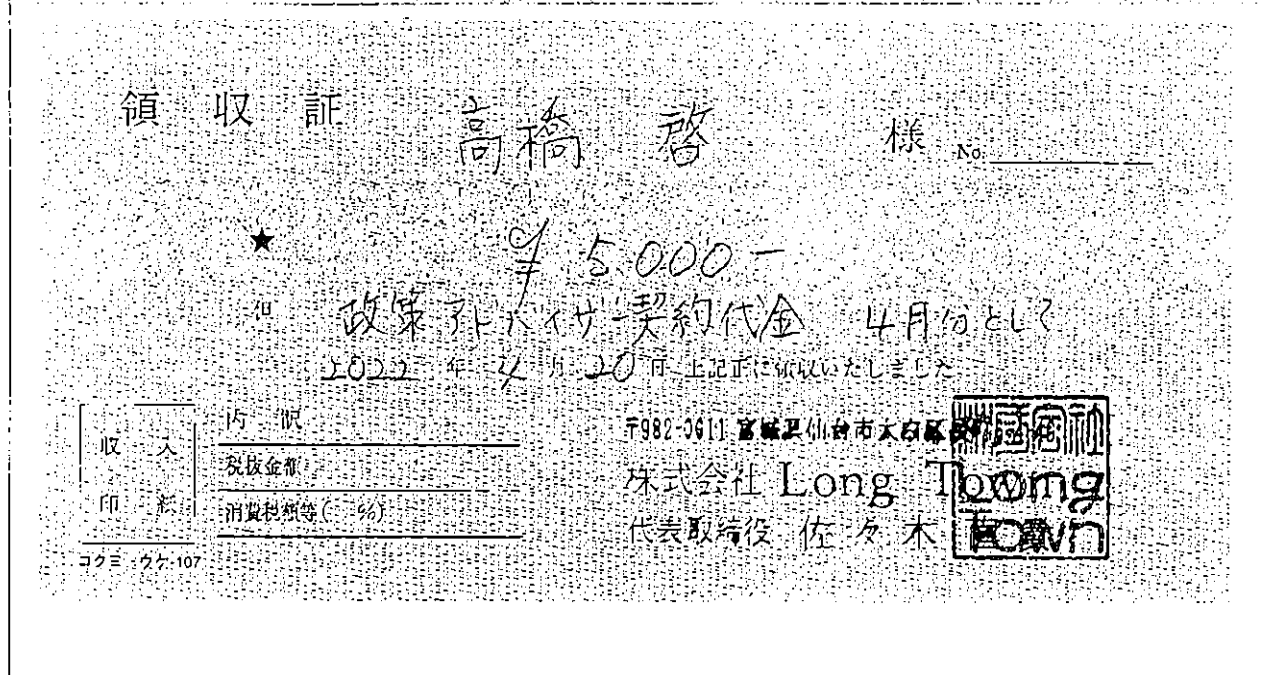 領収証 高橋 啓 様 No.
★ ¥5,000-
但 政策アドバイザー契約代金 4月分として
2022年4月20日 上記正に領収いたしました
収入
印紙
内訳
税抜金額
消費税額等( %)
コクヨ ウケ-107
〒982-0611 宮城県仙台市太白区
株式会社 Long Town
代表取締役 佐々木
株式会社
Long
Town